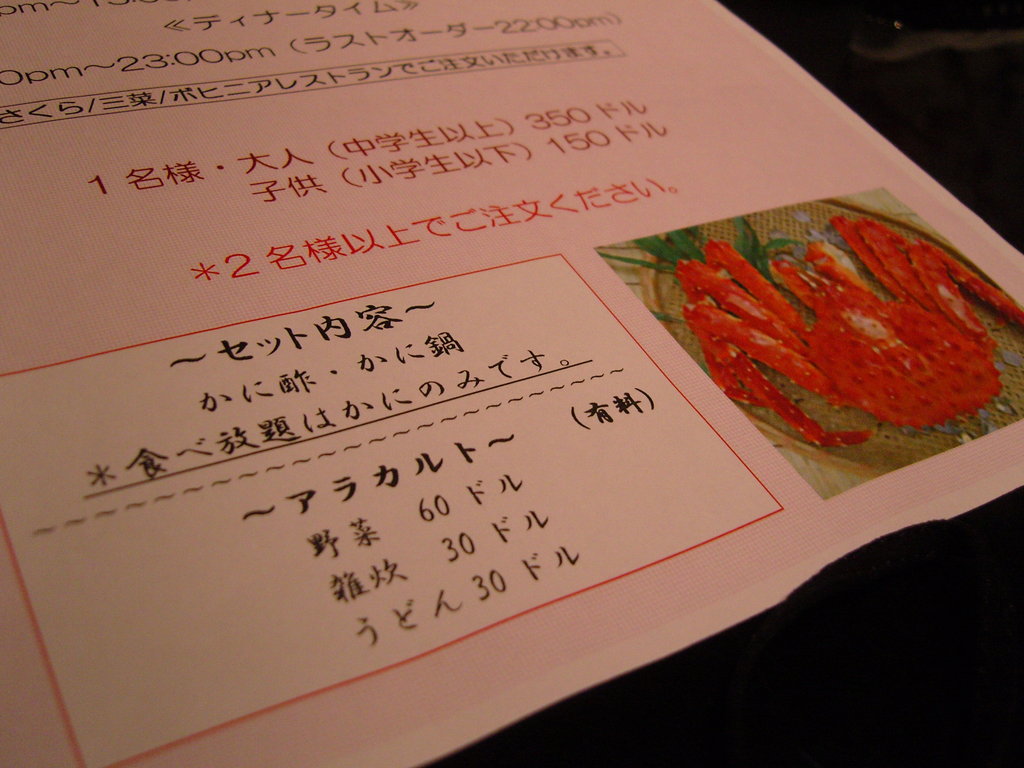 ≪ディナータイム≫
0pm～23:00pm（ラストオーダー22:00pm）
さくら/三菜/ボヒニアレストランでご注文いただけます。
1 名様・大人（中学生以上）350 ドル
子供（小学生以下）150 ドル
＊2 名様以上でご注文ください。
～セット内容～
かに酢・かに鍋
＊食べ放題はかにのみです。
～～～～～～～～～～～～～～～～～～～～～～
～アラカルト～（有料）
野菜 60 ドル
雑炊 30 ドル
うどん 30 ドル